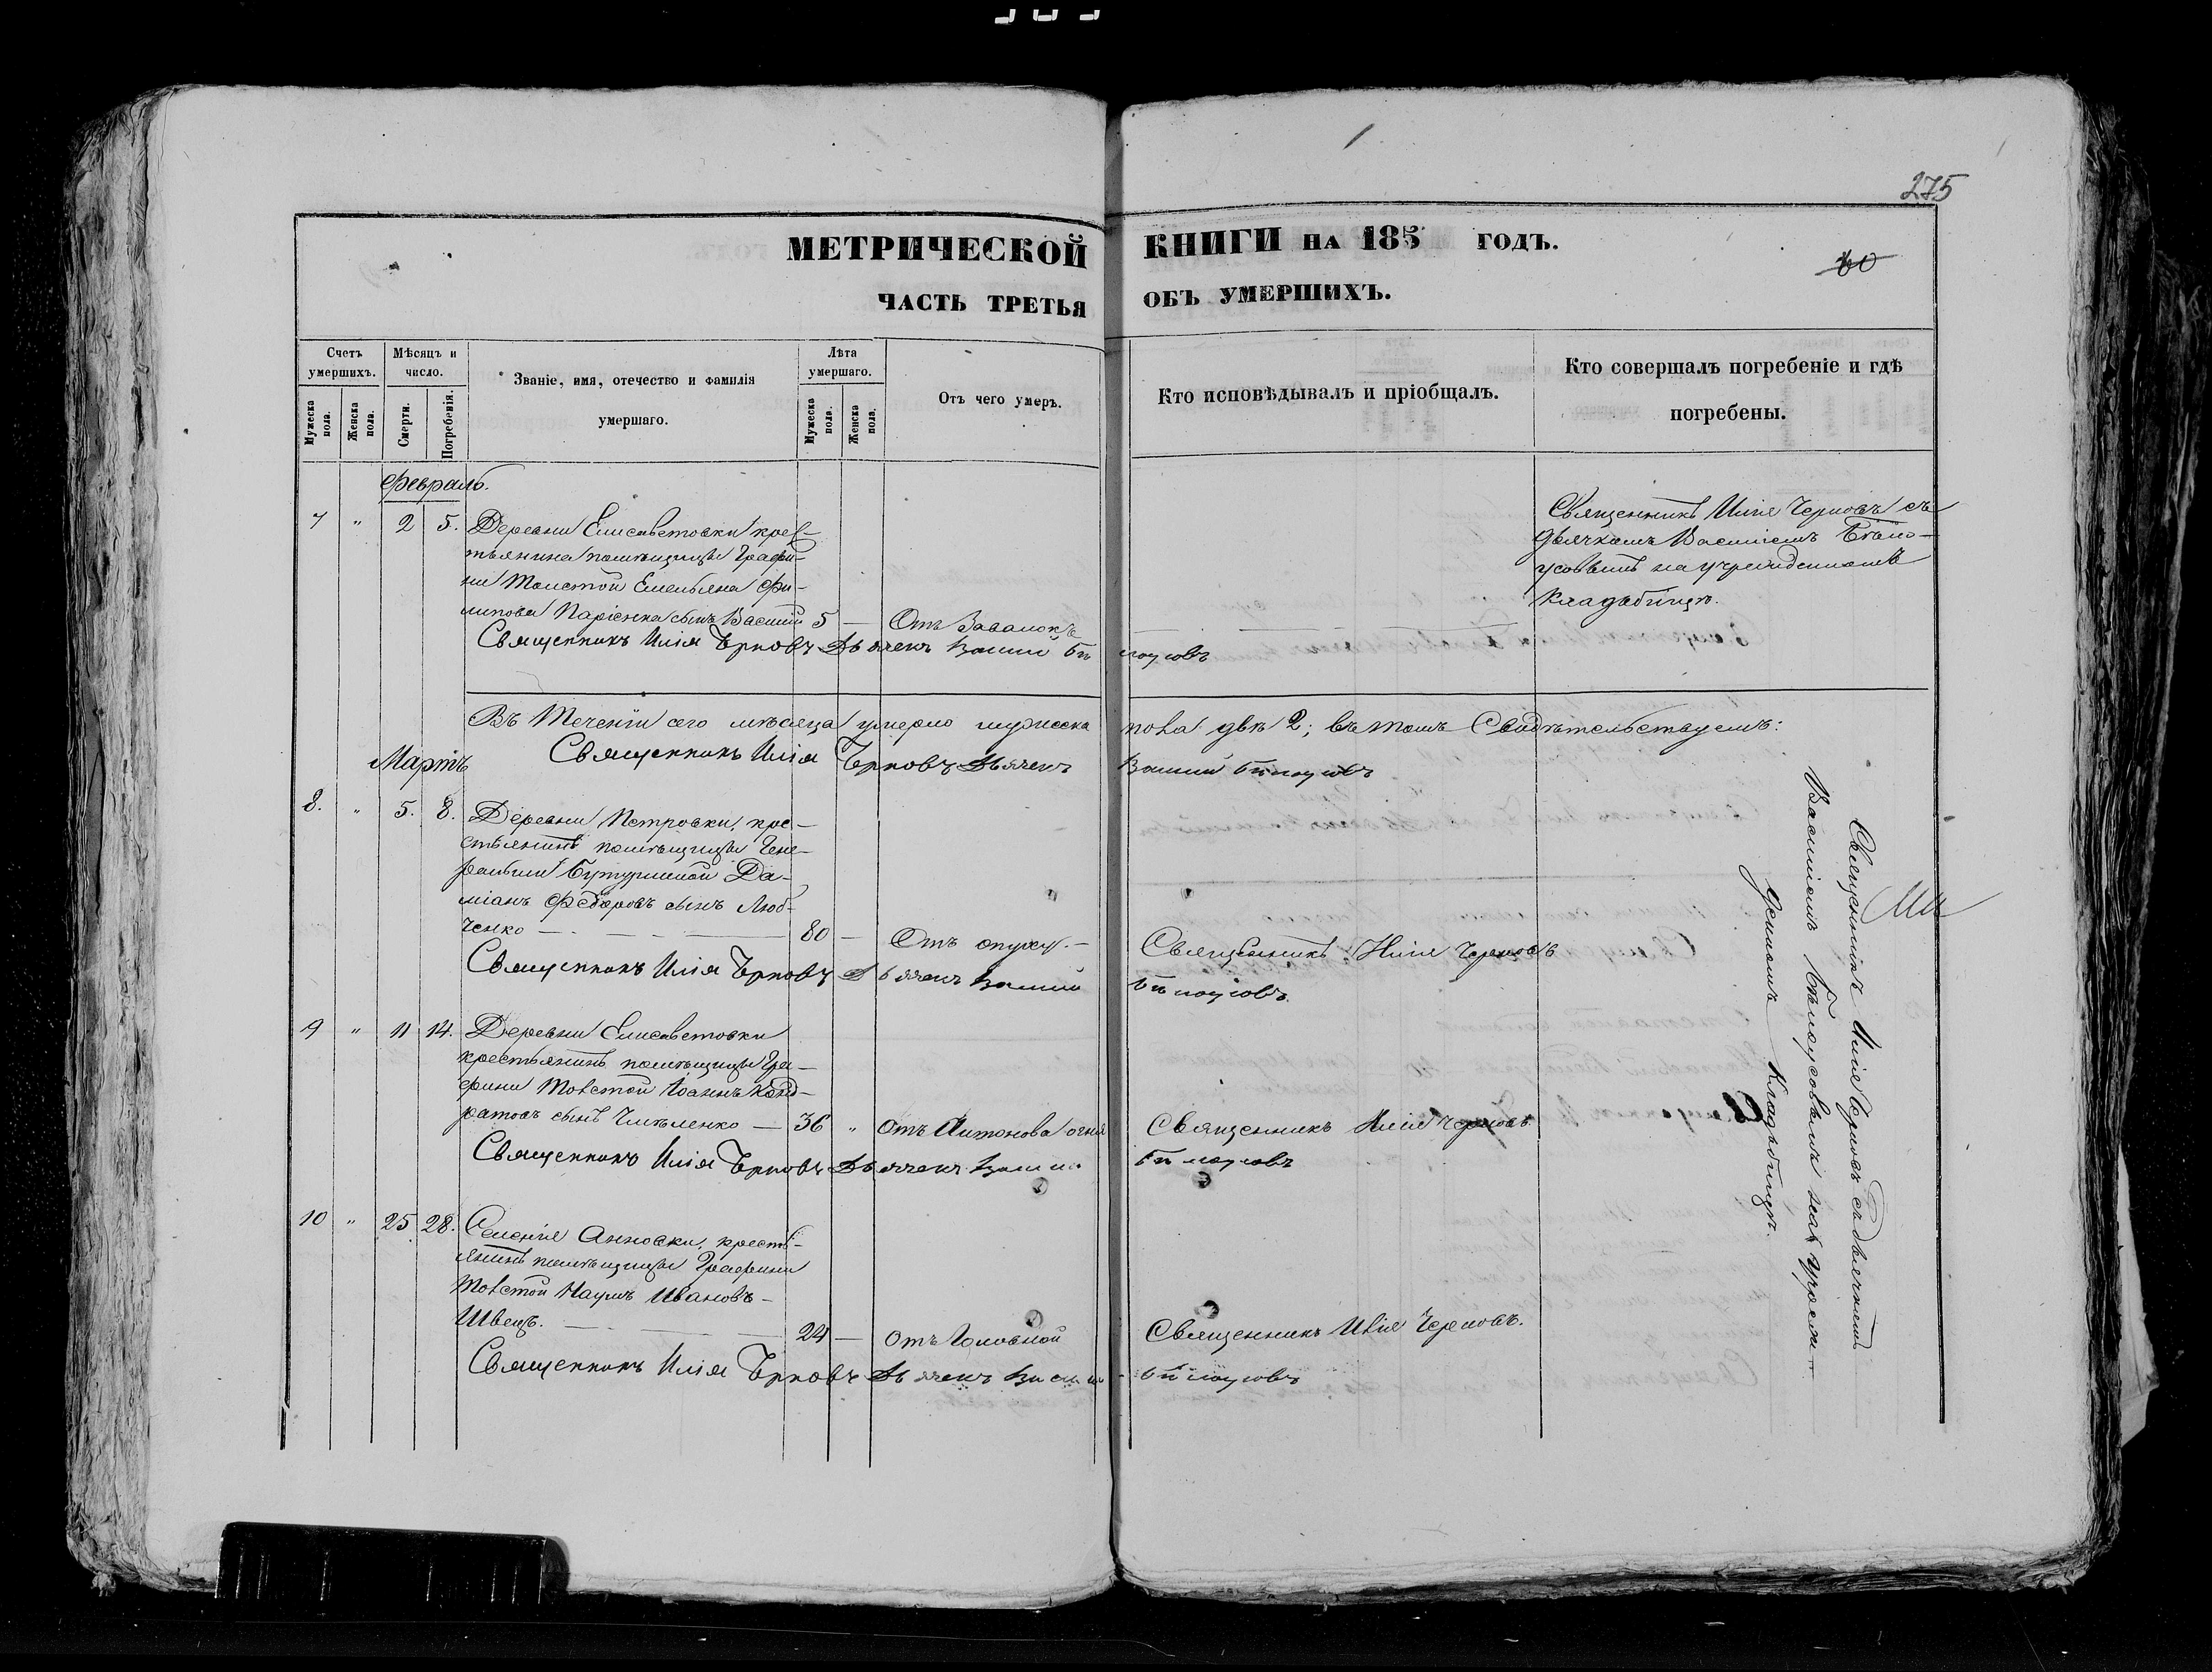 275
МЕТРИЧЕСКОЙ КНИГИ НА 185 ГОДЪ.
60
ЧАСТЬ ТРЕТЬЯ ОБЪ УМЕРШИХЪ.
Счетъ умершихъ.
Мужеска пола.
Женска пола.
Мѣсяцъ и число.
Смерти.
Погребенія.
Званіе, имя, отечество и фамилія
умершаго.
Лѣта умершаго.
Мужеска пола.
Женска пола.
Отъ чего умеръ.
Кто исповѣдывалъ и пріобщалъ.
Кто совершалъ погребеніе и гдѣ
погребены.
Февраль.
7 " 2 5. Деревни Елисаветовки крес-
тьянина помѣщицы Графи-
ни Толстой Емельяна Фи-
липова сынъ Василій 5 —
Священникъ Илія Черновъ съ
дьячкомъ Василіемъ Бѣло-
усовымъ на учрежденномъ
кладбищѣ.
Священникъ Илія Черновъ Дьячекъ Василий Бѣлоусовъ
Въ теченіи сего мѣсяца умерло мужеска пола двѣ 2; въ томъ Свидѣтельствуемъ:
Священникъ Илія Черновъ Дьячекъ Василий Бѣлоусовъ
Мартъ
8. " 5. 8. Деревни Петровки, кре-
стьянинъ помѣщицы Гене-
ральши Бутурлиной Да-
міанъ Федоровъ сынъ Люб-
ченко — 80 — Отъ опуху. — Священникъ Илія Черновъ
Священникъ Илія Черновъ Дьячекъ Василий Бѣлоусовъ
9 " 11 14. Деревни Елисаветовки
крестьянинъ помѣщицы Гра-
фини Толстой Іоаннъ Конд-
ратовъ сынъ — 36 " Отъ Антонова огня Священникъ Илія Черновъ
Священникъ Илія Черновъ Дьячекъ Василий Бѣлоусовъ
10 " 25 28. Селенія Анновки, кресть-
янинъ помѣщицы Графини
Толстой Наумъ Ивановъ —
Швецъ. — 24 — Отъ Головной Священникъ Илія Черновъ.
Священникъ Илія Черновъ Дьячекъ Василий Бѣлоусовъ
Священникъ Илія Черновъ съ дьячкомъ
Василіемъ Бѣлоусовымъ на учреж-
денномъ кладбищѣ.